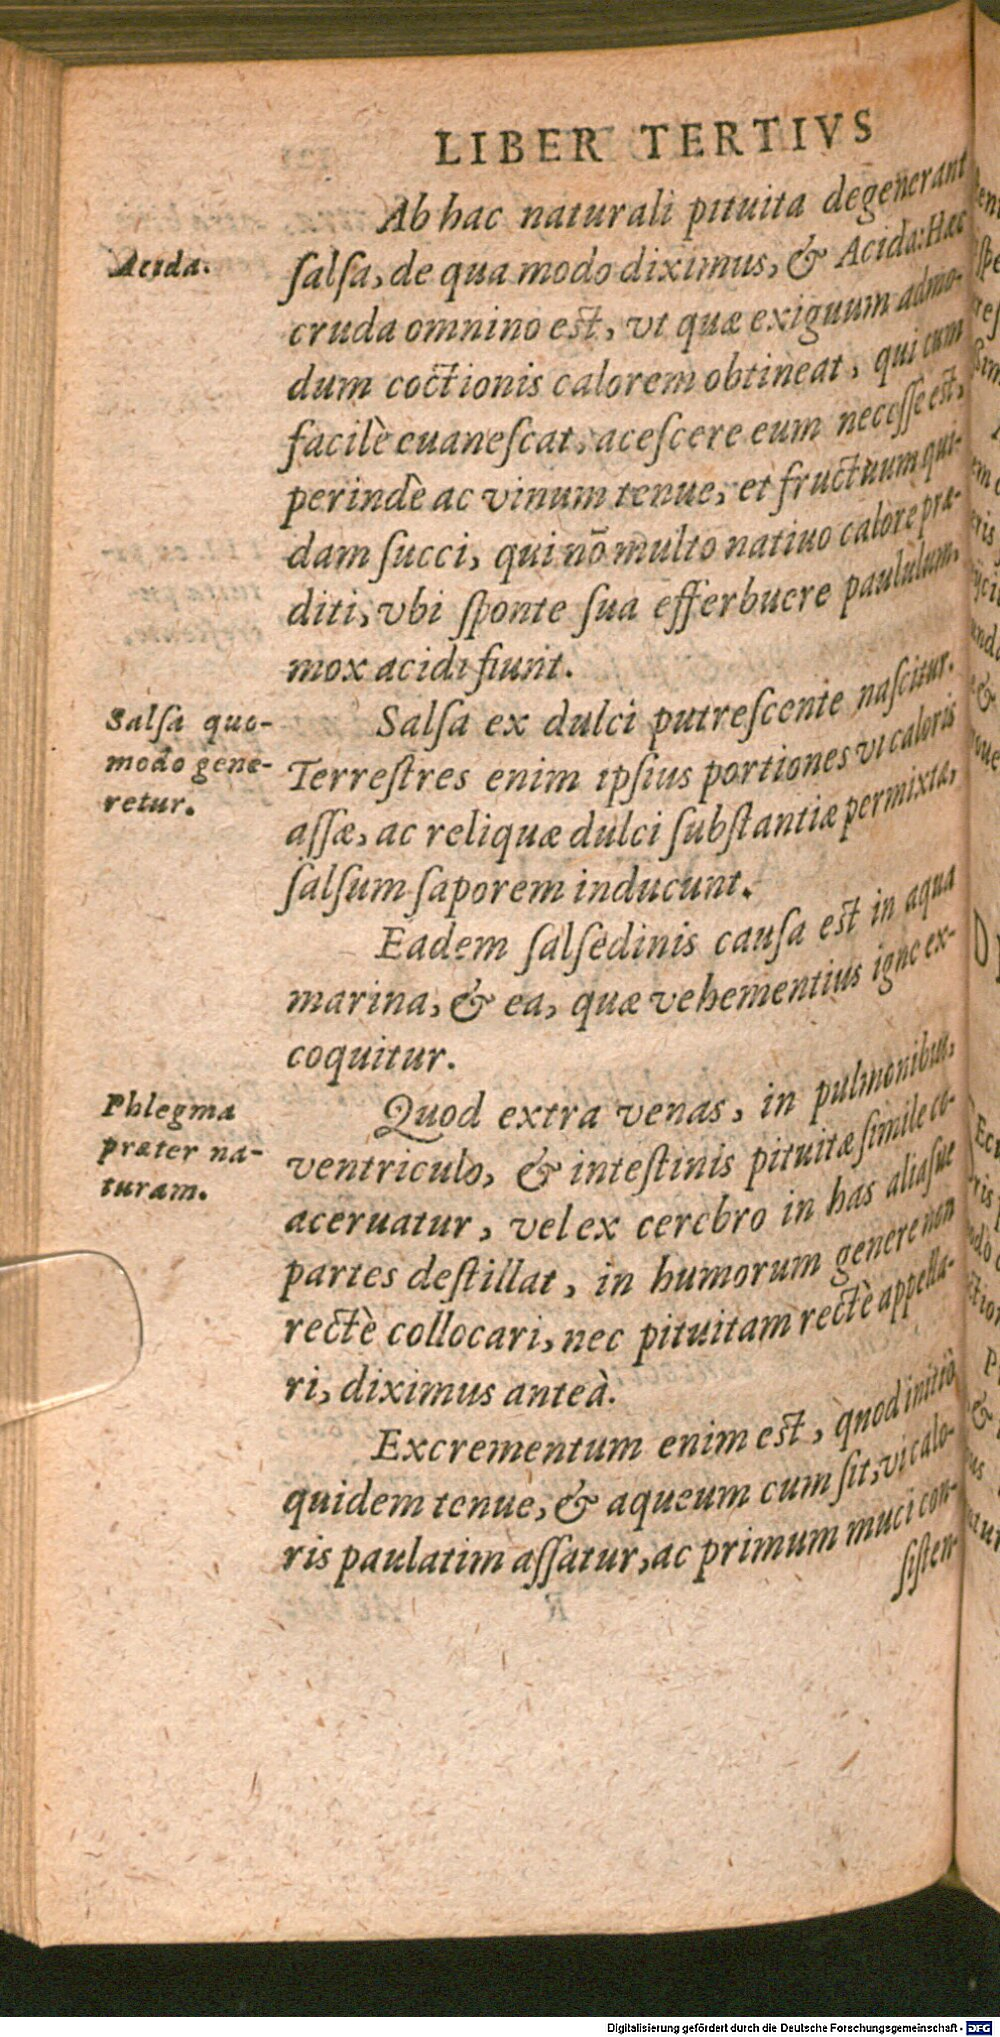 LIBER TERTIVS
Ab hac naturali pituita degenerant
Acida.
ſalſa, de qua modo diximus, & Acida: Hæc
cruda omnino est, vt quæ exiguum admo-
dum coctionis calorem obtineat, qui cum
facilè euaneſcat, aceſcere eum neceſſe est,
perindè ac vinum tenue, et fructuum qui-
dam ſucci, qui nõ multo natiuo calore præ-
diti, vbi ſponte ſua efferbuere paululum,
mox acidi fiunt.
Salſa quo-
modo gene-
retur.
Salſa ex dulci putreſcente naſcitur.
Terreſtres enim ipſius portiones vi caloris
aſſæ, ac reliquæ dulci ſubſtantiæ permixtæ,
ſalſum ſaporem inducunt.
Eadem ſalſedinis cauſa est in aqua
marina, & ea, quæ vehementius igne ex-
coquitur.
Phlegma
præter na-
turam.
Quod extra venas, in pulmonibus,
ventriculo, & inteſtinis pituitæ ſimile co-
aceruatur, vel ex cerebro in has aliaſue
partes deſtillat, in humorum genere non
rectè collocari, nec pituitam rectè appella-
ri, diximus anteà.
Excrementum enim est, quod initiò
quidem tenue, & aqueum cum ſit, vi calo-
ris paulatim aſſatur, ac primum muci con-
ſiſten
Digitalisierung gefördert durch die Deutsche Forschungsgemeinschaft - DFG